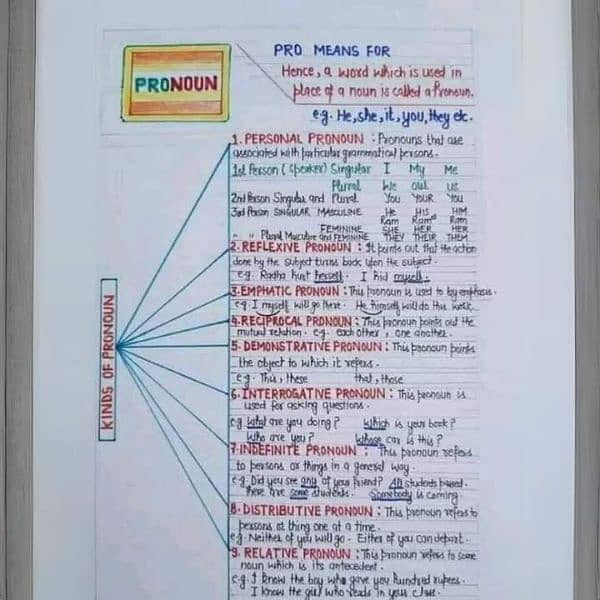 PRO MEANS FOR
PRONOUN
Hence, a word which is used in
place of a noun is called a Pronoun.
e.g. He, she, it, you, they etc.
KINDS OF PRONOUN
1. PERSONAL PRONOUN : Pronouns that are
associated with particular grammatical persons.
1st Person (Speaker) Singular I My Me
Plural We our us
2nd Person Singular and Plural You YOUR You
3rd Person SINGULAR MASCULINE He HIS HIM
Ram Ram's Ram
FEMININE SHE HER HER
" " Plural Masculine and FEMININE THEY THEIR THEM
2. REFLEXIVE PRONOUN : It points out that the action
done by the subject turns back upon the subject.
e.g. Radha hurt herself. I hid myself.
3. EMPHATIC PRONOUN : This pronoun is used to lay emphasis.
e.g. I myself will go there. He himself will do this work.
4. RECIPROCAL PRONOUN : This pronoun points out the
mutual relation. e.g. each other, one another.
5. DEMONSTRATIVE PRONOUN : This pronoun points
the object to which it refers.
e.g. This, these that, those
6. INTERROGATIVE PRONOUN : This pronoun is
used for asking questions.
e.g. What are you doing? Which is your book?
Who are you? Whose car is this?
7. INDEFINITE PRONOUN : This pronoun refers
to persons or things in a general way.
e.g. Did you see any of your friend? All students passed.
There are some students. Somebody is coming.
8. DISTRIBUTIVE PRONOUN : This pronoun refers to
persons or thing one at a time.
e.g. Neither of you will go. Either of you can depart.
9. RELATIVE PRONOUN : This pronoun refers to some
noun which is its antecedent.
e.g. I know the boy who gave you hundred rupees.
I know the girl who reads in your class.